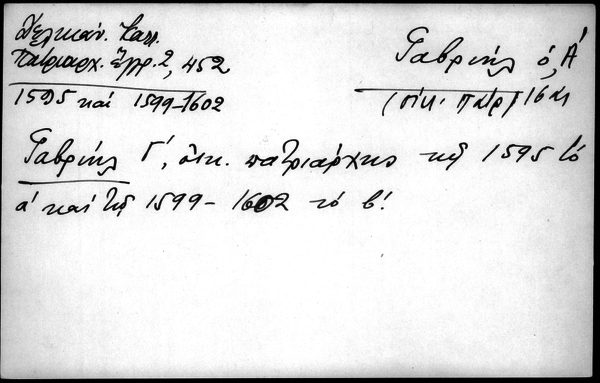 Δελικάν. Καλλ.
Πατριαρχ. Ἔγγρ. 2, 452
1595 καὶ 1599-1602
Γαβριήλ ὁ Α΄
(οἰκ. πατρ) 16 αι
Γαβριήλ Γ΄, οἰκ. πατριάρχης τῷ 1595 τό
α΄ καί τῷ 1599 - 1602 τό β΄.